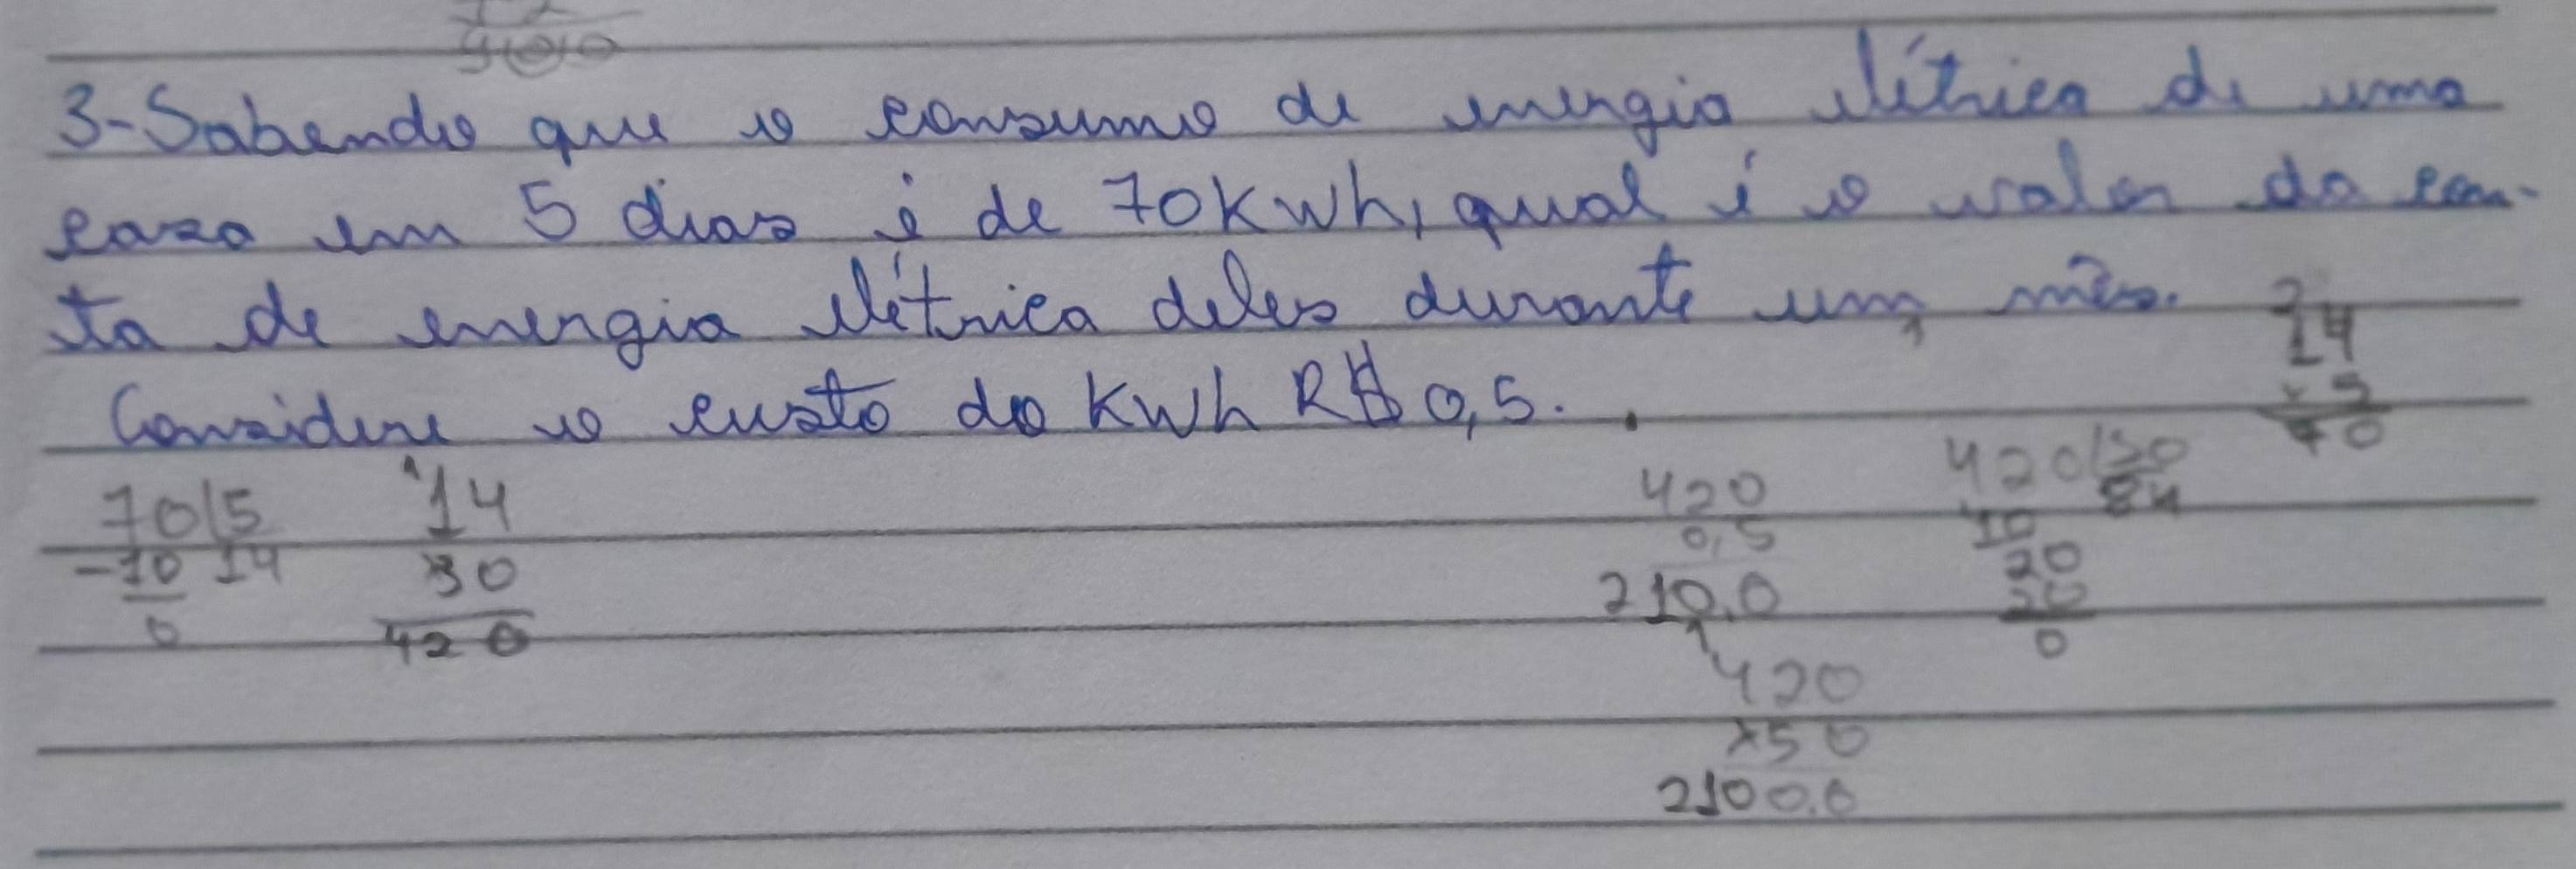 3-Sabendo que o consumo de energia elétrica de uma
casa em 5 dias é de 70KWh, qual é o valor da con-
ta de energia elétrica deles durante um mês.
Considere o custo do KWh R$ 0,5.
70|5
-10 14
0
14
30
420
420
0,5
210,0
420
x50
2100.0
420|
10
20
20
0
14
x5
70